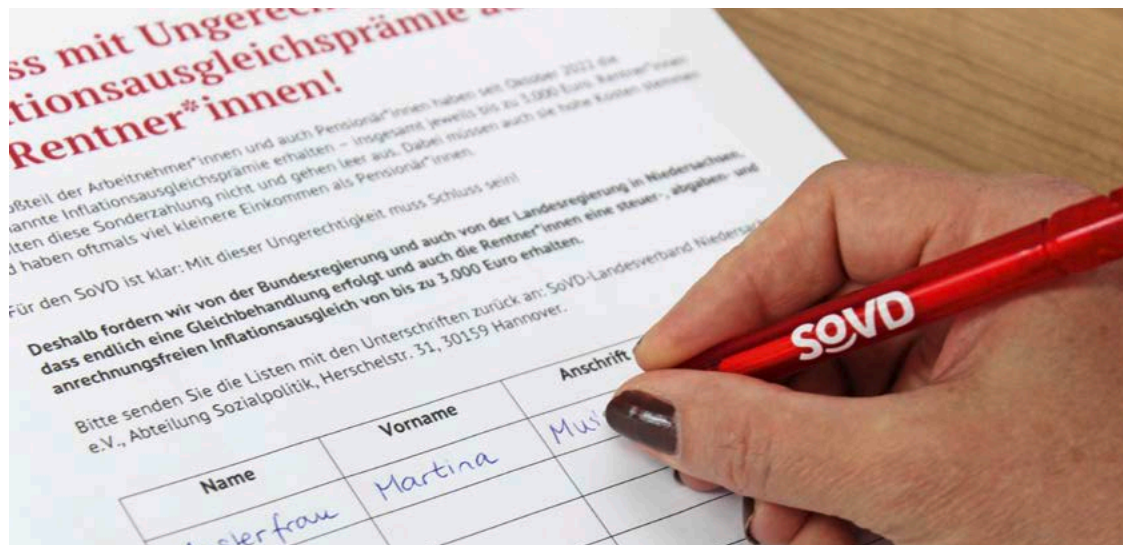 ss mit Ungerech
tionsausgleichsprämie a
Rentner*innen!
oßteil der Arbeitnehmer*innen und auch Pensionär*innen haben seit Oktober 2022 die
annte Inflationsausgleichsprämie erhalten – insgesamt jeweils bis zu 3.000 Euro. Rentner*innen
lten diese Sonderzahlung nicht und gehen leer aus. Dabei müssen auch sie hohe Kosten stemmen
d haben oftmals viel kleinere Einkommen als Pensionär*innen.
Für den SoVD ist klar: Mit dieser Ungerechtigkeit muss Schluss sein!
Deshalb fordern wir von der Bundesregierung und auch von der Landesregierung in Niedersachsen,
dass endlich eine Gleichbehandlung erfolgt und auch die Rentner*innen eine steuer-, abgaben- und
anrechnungsfreien Inflationsausgleich von bis zu 3.000 Euro erhalten.
Bitte senden Sie die Listen mit den Unterschriften zurück an: SoVD-Landesverband Niedersach
e.V., Abteilung Sozialpolitik, Herschelstr. 31, 30159 Hannover.
Name Vorname Anschrift
sterfrau Martina Mus
SoVD